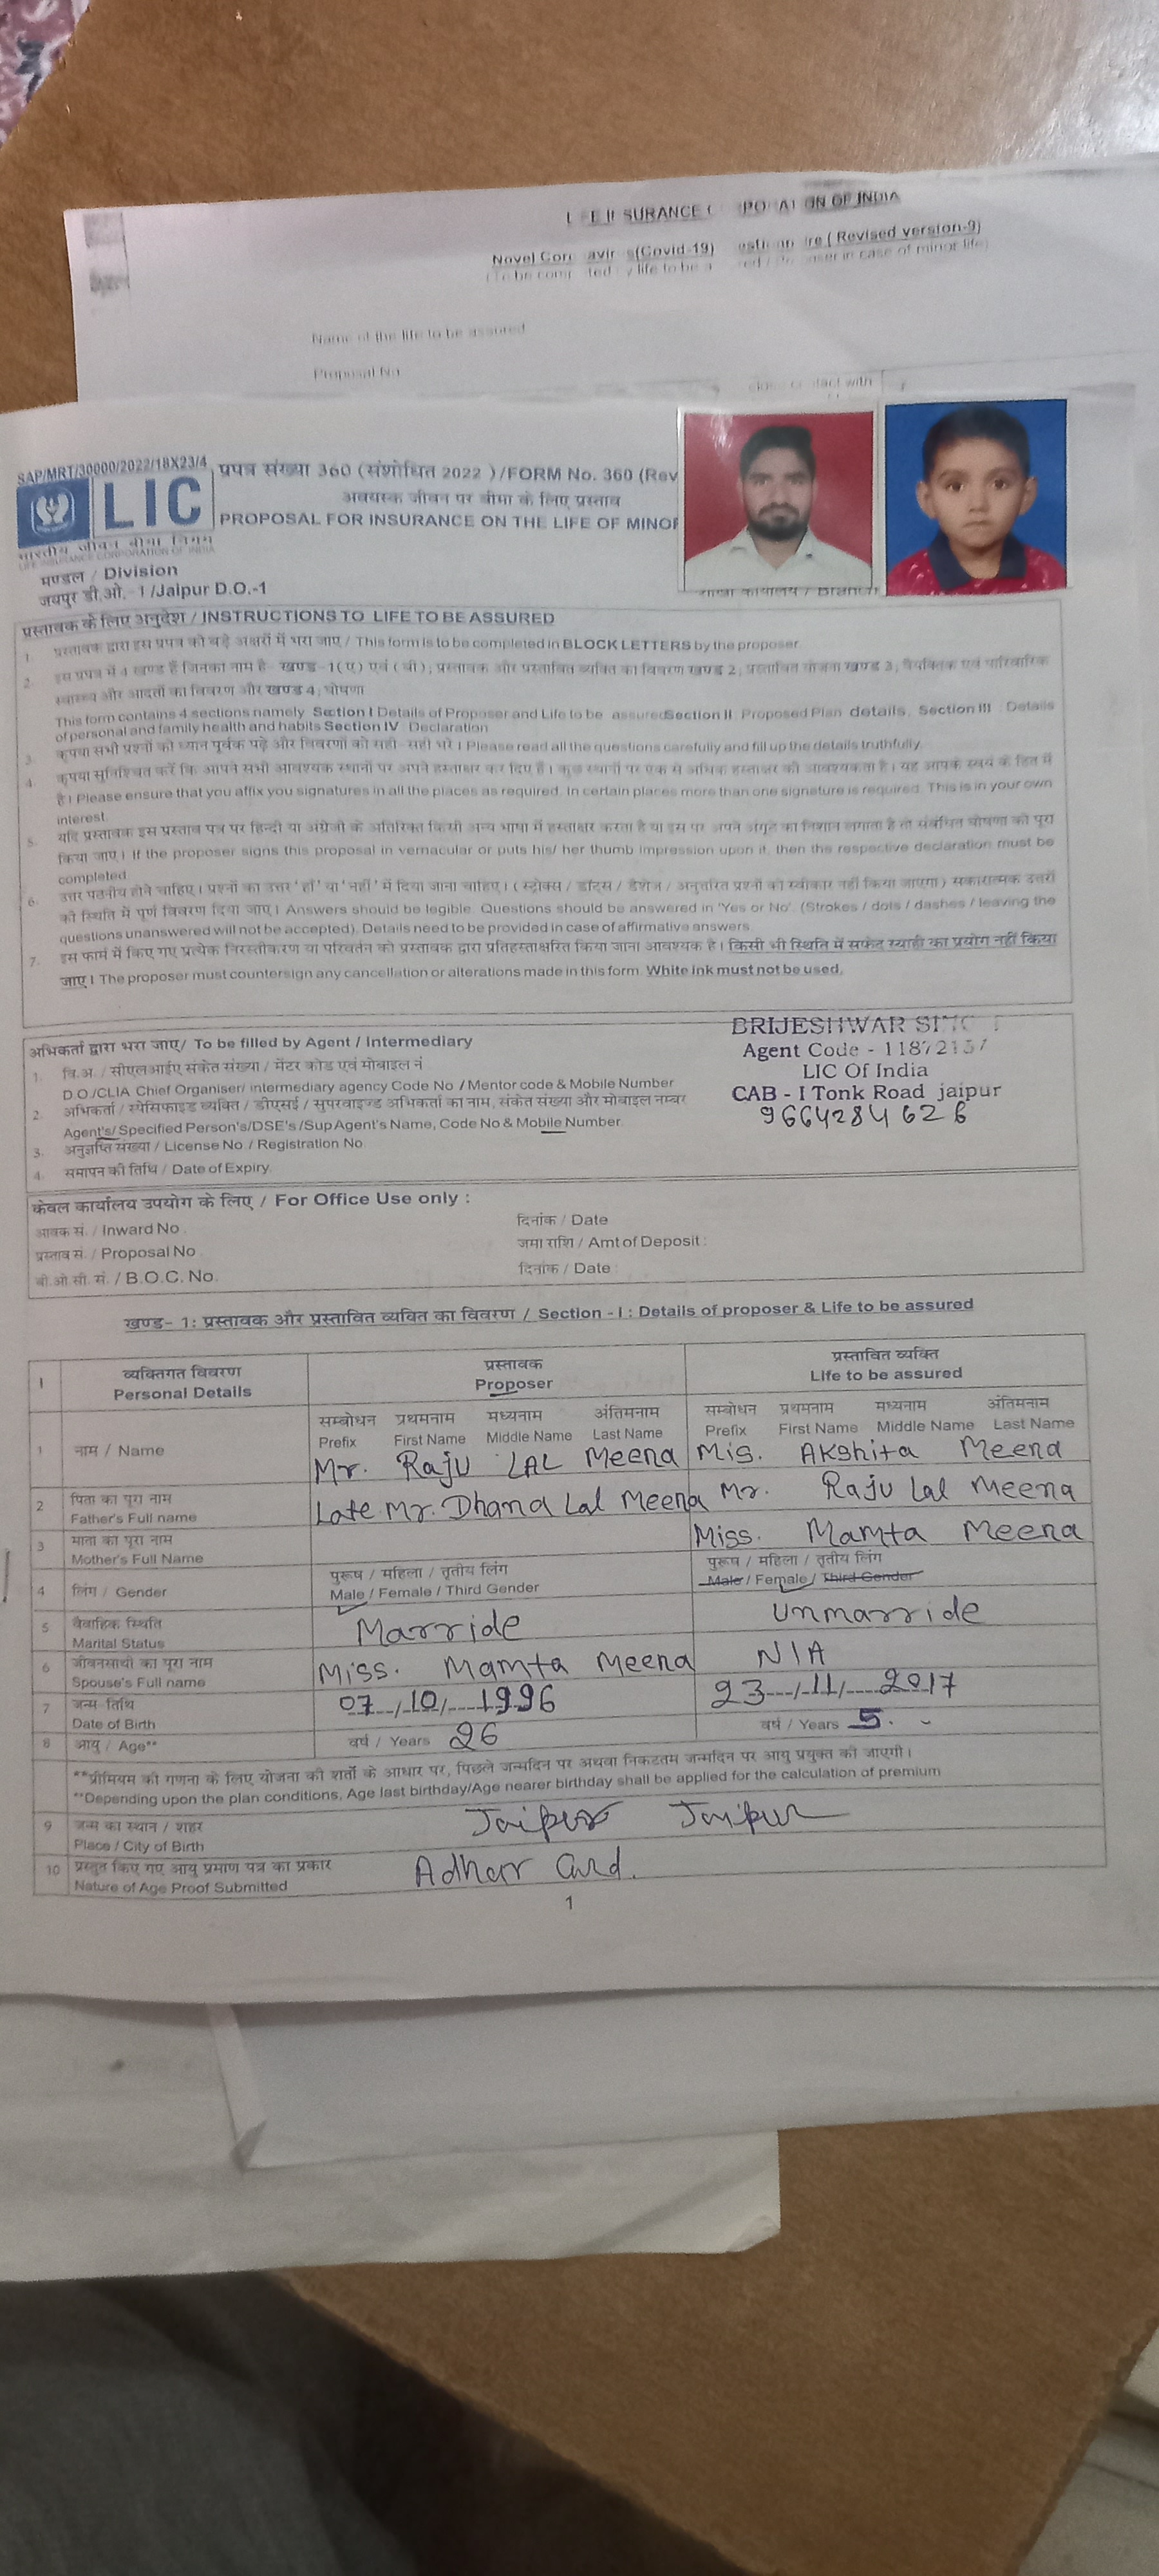 LIFE INSURANCE CORPORATION OF INDIA
Novel Corona virus(Covid-19) Questionnaire ( Revised version-9)
(To be completed by life to be assured / Proposer in case of minor life)
Name of the life to be assured
Proposal No
close contact with
SAP/MRT/30000/2022/18X23/4
प्रपत्र संख्या 360 (संशोधित 2022 )/FORM No. 360 (Rev
LIC
अवयस्क जीवन पर बीमा के लिए प्रस्ताव
PROPOSAL FOR INSURANCE ON THE LIFE OF MINOR
भारतीय जीवन बीमा निगम
LIFE INSURANCE CORPORATION OF INDIA
मण्डल / Division
जयपुर डी.ओ.- 1 /Jaipur D.O.-1
शाखा कार्यालय / Branch
प्रस्तावक के लिए अनुदेश / INSTRUCTIONS TO LIFE TO BE ASSURED
1. प्रस्तावक द्वारा इस प्रपत्र को बड़े अक्षरों में भरा जाए / This form is to be completed in BLOCK LETTERS by the proposer.
2. इस प्रपत्र में 4 खण्ड हैं जिनका नाम है- खण्ड- 1(ए) एवं (बी), प्रस्तावक और प्रस्तावित व्यक्ति का विवरण खण्ड 2, प्रस्तावित योजना खण्ड 3, वैयक्तिक एवं पारिवारिक
स्वास्थ्य और आदतों का विवरण और खण्ड 4, घोषणा
This form contains 4 sections namely Section I Details of Proposer and Life to be assured Section II Proposed Plan details, Section III : Details
of personal and family health and habits Section IV Declaration
3. कृपया सभी प्रश्नों को ध्यान पूर्वक पढ़े और विवरणों को सही- सही भरें । Please read all the questions carefully and fill up the details truthfully.
4. कृपया सुनिश्चित करें कि आपने सभी आवश्यक स्थानों पर अपने हस्ताक्षर कर दिए हैं । कुछ स्थानों पर एक से अधिक हस्ताक्षर की आवश्यकता है । यह आपके स्वयं के हित में
है । Please ensure that you affix you signatures in all the places as required. In certain places more than one signature is required. This is in your own
interest.
5. यदि प्रस्तावक इस प्रस्ताव पत्र पर हिन्दी या अंग्रेजी के अतिरिक्त किसी अन्य भाषा में हस्ताक्षर करता है या इस पर अपने अंगूठे का निशान लगाता है तो संबंधित घोषणा को पूरा
किया जाए । If the proposer signs this proposal in vernacular or puts his/ her thumb impression upon it, then the respective declaration must be
completed
6. उत्तर पठनीय होने चाहिए । प्रश्नों का उत्तर ' हाँ ' या ' नहीं ' में दिया जाना चाहिए । ( स्ट्रोक्स / डॉट्स / डैशेज / अनुत्तरित प्रश्नों को स्वीकार नहीं किया जाएगा) सकारात्मक उत्तरों
की स्थिति में पूर्ण विवरण दिया जाए । Answers should be legible. Questions should be answered in 'Yes or No'. (Strokes / dots / dashes / leaving the
questions unanswered will not be accepted). Details need to be provided in case of affirmative answers.
7. इस फार्म में किए गए प्रत्येक निरस्तीकरण या परिवर्तन को प्रस्तावक द्वारा प्रतिहस्ताक्षरित किया जाना आवश्यक है । किसी भी स्थिति में सफेद स्याही का प्रयोग नहीं किया
जाए । The proposer must countersign any cancellation or alterations made in this form. White ink must not be used.
अभिकर्ता द्वारा भरा जाए/ To be filled by Agent / Intermediary
1. वि.अ. / सीएलआईए संकेत संख्या / मेंटर कोड एवं मोबाइल नं
D.O./CLIA Chief Organiser/ intermediary agency Code No / Mentor code & Mobile Number
2. अभिकर्ता / स्पेसिफाइड व्यक्ति / डीएसई / सुपरवाइज्ड अभिकर्ता का नाम, संकेत संख्या और मोबाइल नम्बर
Agent's/ Specified Person's/DSE's /Sup Agent's Name, Code No & Mobile Number
3. अनुज्ञप्ति संख्या / License No. / Registration No
4. समापन की तिथि / Date of Expiry.
BRIJESHWAR
Agent Code - 11872137
LIC Of India
CAB - I Tonk Road jaipur
9664284626
केवल कार्यालय उपयोग के लिए / For Office Use only :
आवक सं. / Inward No.
दिनांक / Date
प्रस्ताव सं. / Proposal No
जमा राशि / Amt of Deposit :
बी.ओ.सी.सं. / B.O.C. No.
दिनांक / Date :
खण्ड- 1: प्रस्तावक और प्रस्तावित व्यक्ति का विवरण / Section - I : Details of proposer & Life to be assured
I व्यक्तिगत विवरण प्रस्तावक प्रस्तावित व्यक्ति
Personal Details Proposer Life to be assured
सम्बोधन प्रथमनाम मध्यनाम अंतिमनाम सम्बोधन प्रथमनाम मध्यनाम अंतिमनाम
1 नाम / Name Prefix First Name Middle Name Last Name Prefix First Name Middle Name Last Name
Mr. Raju LAL Meena Mis. Akshita Meena
2 पिता का पूरा नाम
Father's Full name Late. Mr. Dhana Lal Meena Mr. Raju Lal Meena
3 माता का पूरा नाम
Mother's Full Name Miss. Mamta Meena
4 लिंग / Gender पुरूष / महिला / तृतीय लिंग पुरूष / महिला / तृतीय लिंग
Male / Female / Third Gender Male / Female / Third Gender
5 वैवाहिक स्थिति
Marital Status Marride Unmarride
6 जीवनसाथी का पूरा नाम
Spouse's Full name Miss. Mamta Meena N/A
7 जन्म-तिथि
Date of Birth 07/10/1996 23/11/2017
8 आयु / Age** वर्ष / Years 26 वर्ष / Years 5.
**प्रीमियम की गणना के लिए योजना की शर्तों के आधार पर, पिछले जन्मदिन पर अथवा निकटतम जन्मदिन पर आयु प्रयुक्त की जाएगी ।
**Depending upon the plan conditions, Age last birthday/Age nearer birthday shall be applied for the calculation of premium
9 जन्म का स्थान / शहर
Place / City of Birth Jaipur Jaipur
10 प्रस्तुत किए गए आयु प्रमाण पत्र का प्रकार
Nature of Age Proof Submitted Adhar Card.
1